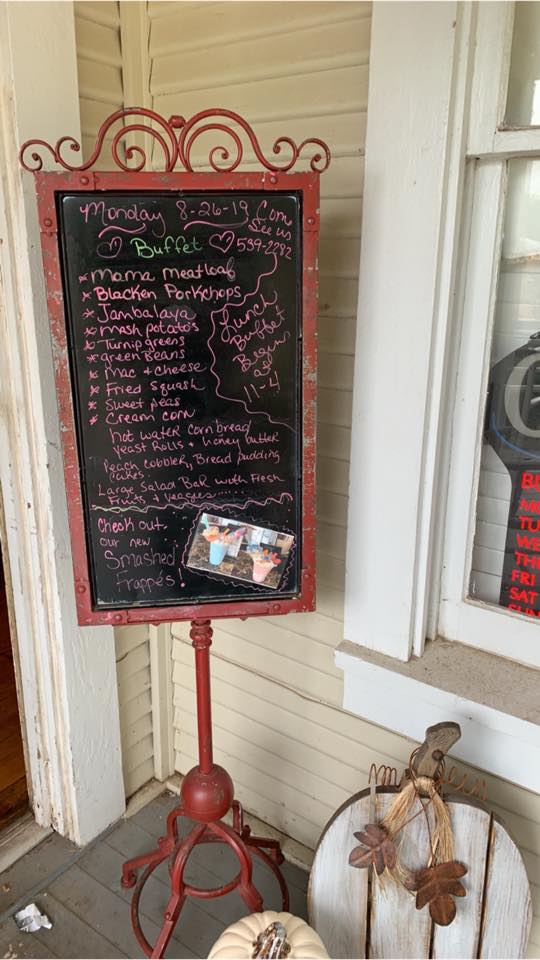 Monday 8-26-19 Come
See us
Buffet 539-2282
* mama meatloaf
* Blacken Porkchops
* Jambalaya
* mash potato's
* Turnip greens
* green Beans
* Mac + cheese
* Fried squash
* Sweet peas
* Cream corn
Lunch
Buffet
Begins
at
11-4
hot water cornbread
yeast Rolls + honey butter
Peach cobbler, Bread pudding
cakes
Large Salad Bar with Fresh
Fruits & veggies......
Check out
our new
Smashed
Frappés!
FRI
SAT
SUN